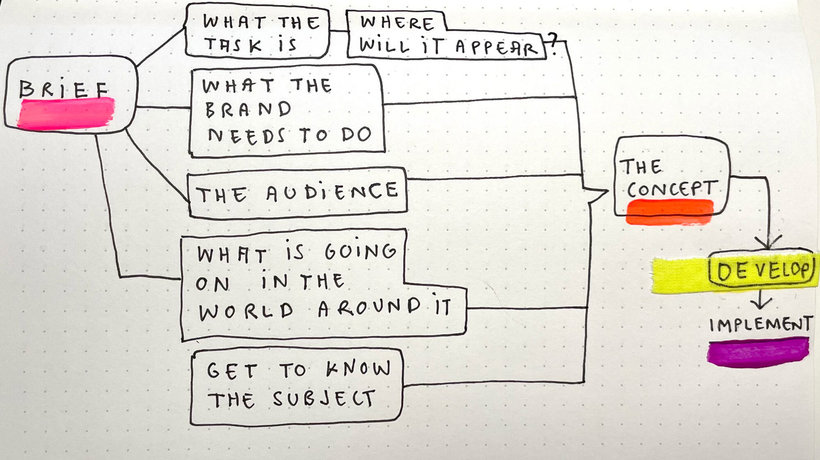 BRIEF
WHAT THE
TASK IS
WHERE
WILL IT APPEAR?
WHAT THE
BRAND
NEEDS TO DO
THE AUDIENCE
WHAT IS GOING
ON IN THE
WORLD AROUND IT
GET TO KNOW
THE SUBJECT
THE
CONCEPT
DEVELOP
IMPLEMENT